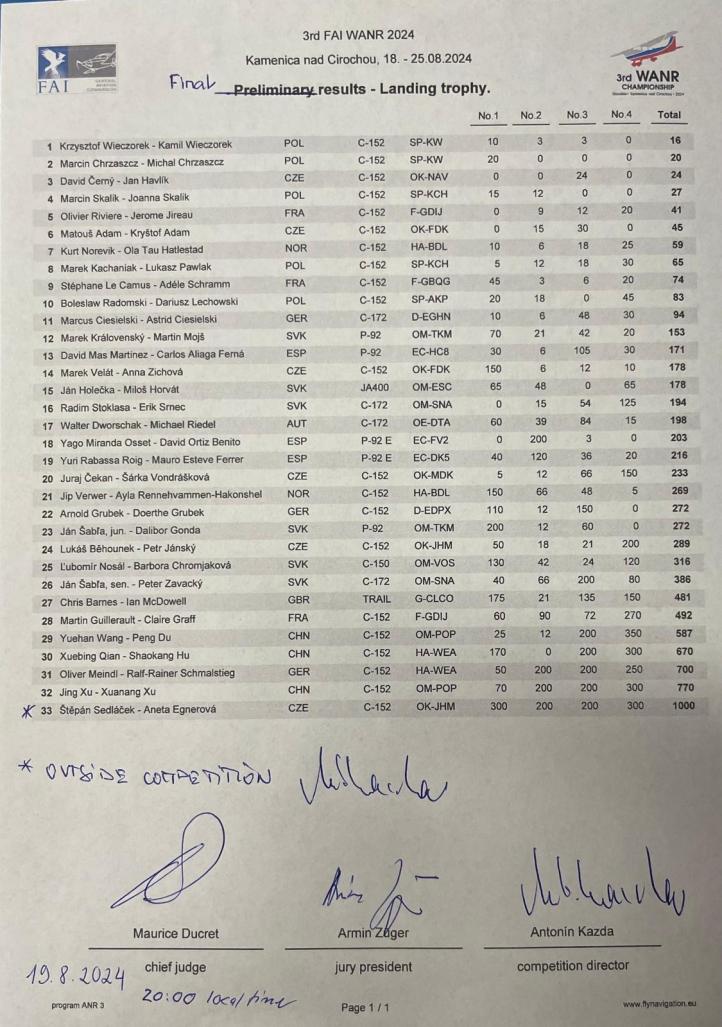 3rd FAI WANR 2024
Kamenica nad Cirochou, 18. - 25.08.2024
FAI
3rd WANR
CHAMPIONSHIP
Final Preliminary results - Landing trophy.
No.1 No.2 No.3 No.4 Total
1 Krzysztof Wieczorek - Kamil Wieczorek POL C-152 SP-KW 10 3 3 0 16
2 Marcin Chrzaszcz - Michal Chrzaszcz POL C-152 SP-KW 20 0 0 0 20
3 David Černý - Jan Havlík CZE C-152 OK-NAV 0 0 24 0 24
4 Marcin Skalik - Joanna Skalik POL C-152 SP-KCH 15 12 0 0 27
5 Olivier Riviere - Jerome Jireau FRA C-152 F-GDIJ 0 9 12 20 41
6 Matouš Adam - Kryštof Adam CZE C-152 OK-FDK 0 15 30 0 45
7 Kurt Norevik - Ola Tau Hatlestad NOR C-152 HA-BDL 10 6 18 25 59
8 Marek Kachaniak - Lukasz Pawlak POL C-152 SP-KCH 5 12 18 30 65
9 Stéphane Le Camus - Adéle Schramm FRA C-152 F-GBQG 45 3 6 20 74
10 Boleslaw Radomski - Dariusz Lechowski POL C-152 SP-AKP 20 18 0 45 83
11 Marcus Ciesielski - Astrid Ciesielski GER C-172 D-EGHN 10 6 48 30 94
12 Marek Královenský - Martin Mojš SVK P-92 OM-TKM 70 21 42 20 153
13 David Mas Martínez - Carlos Aliaga Ferná ESP P-92 EC-HC8 30 6 105 30 171
14 Marek Velát - Anna Zichová CZE C-152 OK-FDK 150 6 12 10 178
15 Ján Holečka - Miloš Horvát SVK JA400 OM-ESC 65 48 0 65 178
16 Radim Stoklasa - Erik Srnec SVK C-172 OM-SNA 0 15 54 125 194
17 Walter Dworschak - Michael Riedel AUT C-172 OE-DTA 60 39 84 15 198
18 Yago Miranda Osset - David Ortiz Benito ESP P-92 E EC-FV2 0 200 3 0 203
19 Yuri Rabassa Roig - Mauro Esteve Ferrer ESP P-92 E EC-DK5 40 120 36 20 216
20 Juraj Čekan - Šárka Vondrášková CZE C-152 OK-MDK 5 12 66 150 233
21 Jip Verwer - Ayla Rennehvammen-Hakonshel NOR C-152 HA-BDL 150 66 48 5 269
22 Arnold Grubek - Doerthe Grubek GER C-152 D-EDPX 110 12 150 0 272
23 Ján Šabľa, jun. - Dalibor Gonda SVK P-92 OM-TKM 200 12 60 0 272
24 Lukáš Běhounek - Petr Jánský CZE C-152 OK-JHM 50 18 21 200 289
25 Ľubomír Nosál - Barbora Chromjaková SVK C-150 OM-VOS 130 42 24 120 316
26 Ján Šabľa, sen. - Peter Zavacký SVK C-172 OM-SNA 40 66 200 80 386
27 Chris Barnes - Ian McDowell GBR TRAIL G-CLCO 175 21 135 150 481
28 Martin Guillerault - Claire Graff FRA C-152 F-GDIJ 60 90 72 270 492
29 Yuehan Wang - Peng Du CHN C-152 OM-POP 25 12 200 350 587
30 Xuebing Qian - Shaokang Hu CHN C-152 HA-WEA 170 0 200 300 670
31 Oliver Meindl - Ralf-Rainer Schmalstieg GER C-152 HA-WEA 50 200 200 250 700
32 Jing Xu - Xuanang Xu CHN C-152 OM-POP 70 200 200 300 770
* 33 Štěpán Sedláček - Aneta Egnerová CZE C-152 OK-JHM 300 200 200 300 1000
* OUTSIDE COMPETITION
Maurice Ducret Armin Züger Antonín Kazda
chief judge jury president competition director
19.8.2024
20:00 local time
program ANR 3 Page 1 / 1 www.flynavigation.eu